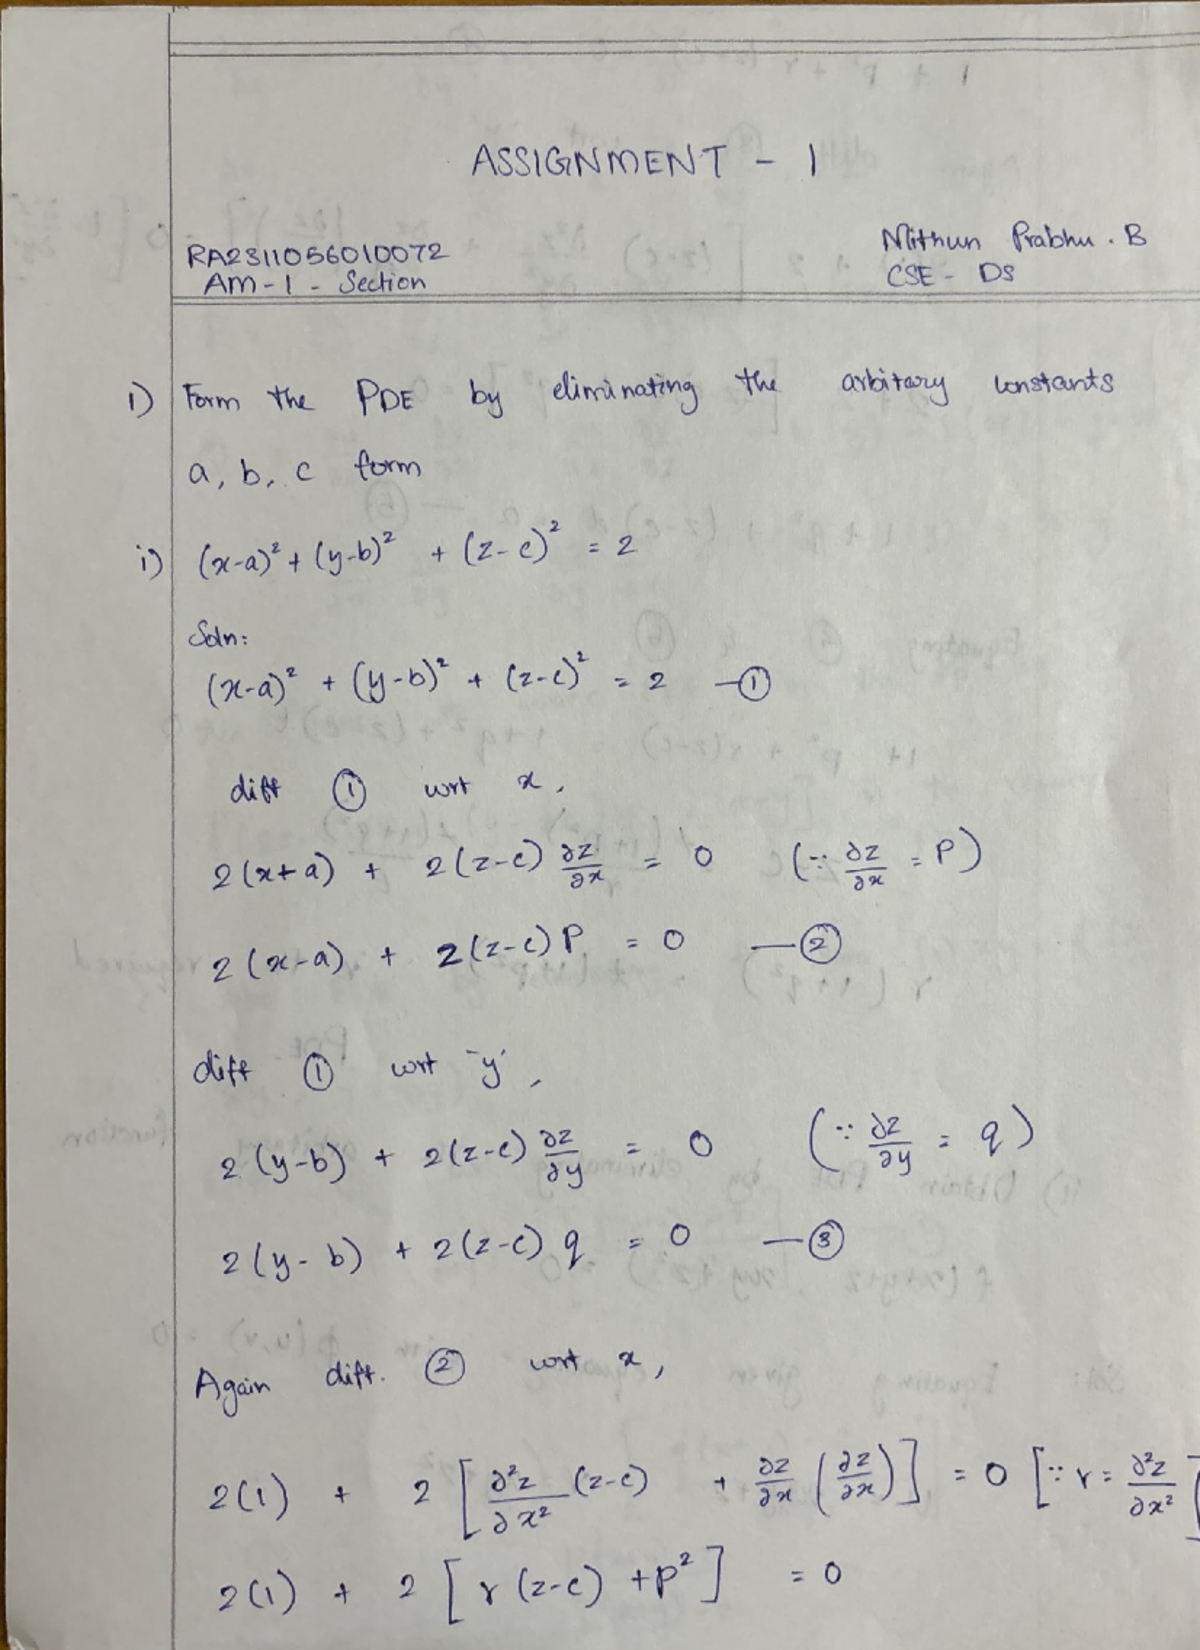 ASSIGNMENT - 1
RA2311056010072
AM-1 - Section
Nithun Prabhu . B
CSE - DS
1) Form the PDE by eliminating the arbitary constants
a, b, c form
i) (x-a)² + (y-b)² + (z-c)² = 2
Soln:
(x-a)² + (y-b)² + (z-c)² = 2 —①
diff ① wrt x,
2(x+a) + 2(z-c) ∂z/∂x = 0 (∵ ∂z/∂x = P)
2(x-a) + 2(z-c) P = 0 —②
diff ① wrt 'y',
2(y-b) + 2(z-c) ∂z/∂y = 0 (∵ ∂z/∂y = q)
2(y-b) + 2(z-c) q = 0 —③
Again diff. ② wrt x,
2(1) + 2 [∂²z/∂x² (z-c) + ∂z/∂x (∂z/∂x)] = 0 [∵ r = ∂²z/∂x²]
2(1) + 2 [r (z-c) + p²] = 0